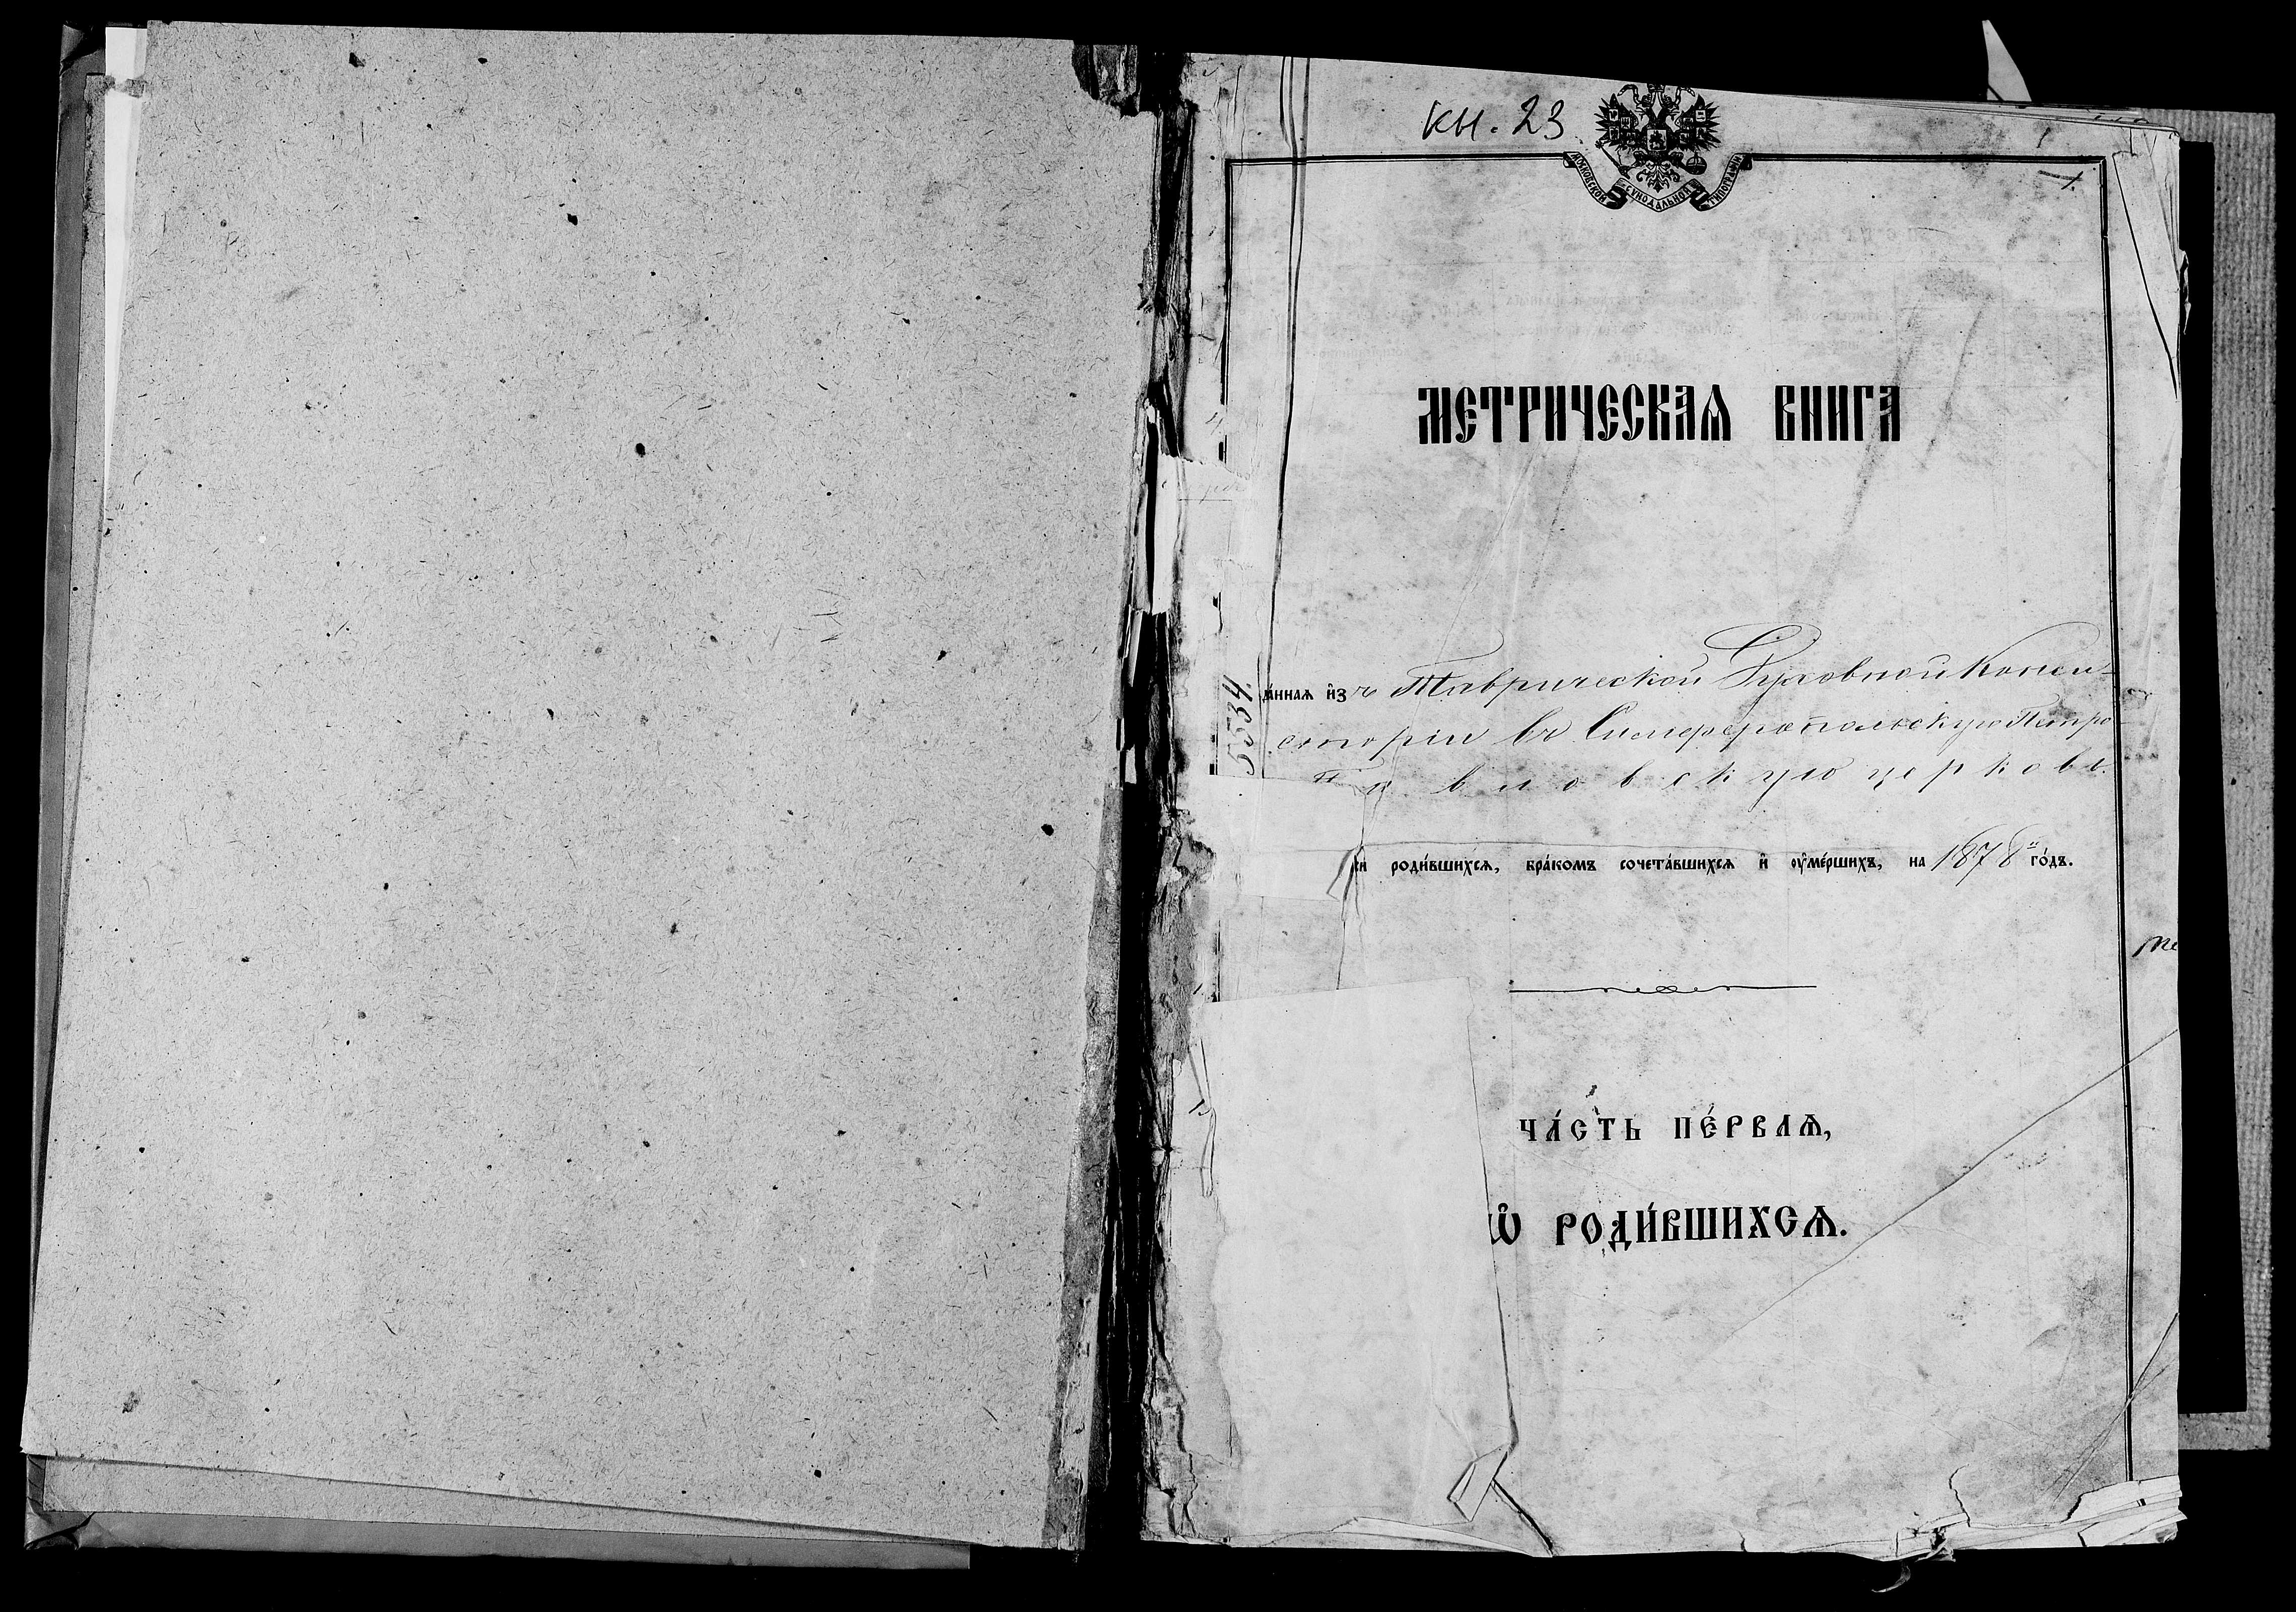 кн. 23
МОСКОВСКОЙ СѴНОДАЛЬНОЙ ТИПОГРАФІИ
1.
МЕТРИЧЕСКАѦ КНИГА
а́ннаѧ и҆зъ Таврической Духовной Конси-
сторіи въ Симферопольскую Петро
Павловскую церковь.
5534.
роди́вшихсѧ, бра́комъ сочета́вшихсѧ и҆ ᲂу҆ме́ршихъ, на 1878й го́дъ.
ЧА́СТЬ ПЕ́РВАѦ,
Ѽ РОДИ́ВШИХСѦ.